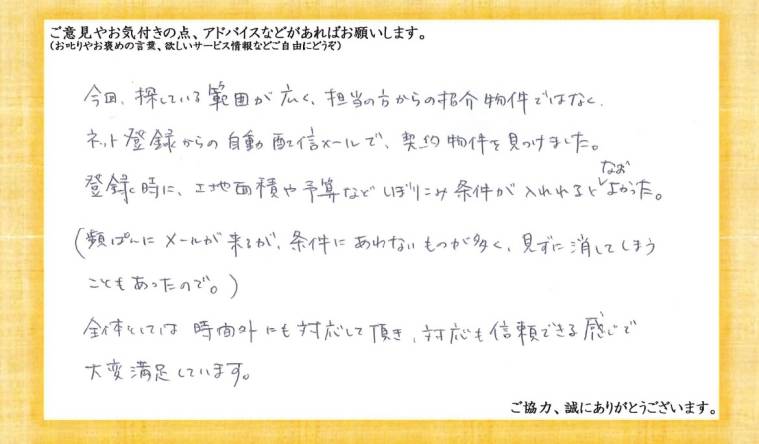 ご意見やお気付きの点、アドバイスなどがあればお願いします。
(お叱りやお褒めの言葉、欲しいサービス情報などご自由にどうぞ)
今回、探している範囲が広く、担当の方からの紹介物件ではなく、
ネット登録からの自動配信メールで、契約物件を見つけました。
登録時に、土地面積や予算などしぼりこみ条件が入れれるとなおよかった。
(頻ぱんにメールが来るが、条件にあわないものが多く、見ずに消してしまう
こともあったので。)
全体としては時間外にも対応して頂き、対応も信頼できる感じで
大変満足しています。
ご協力、誠にありがとうございます。